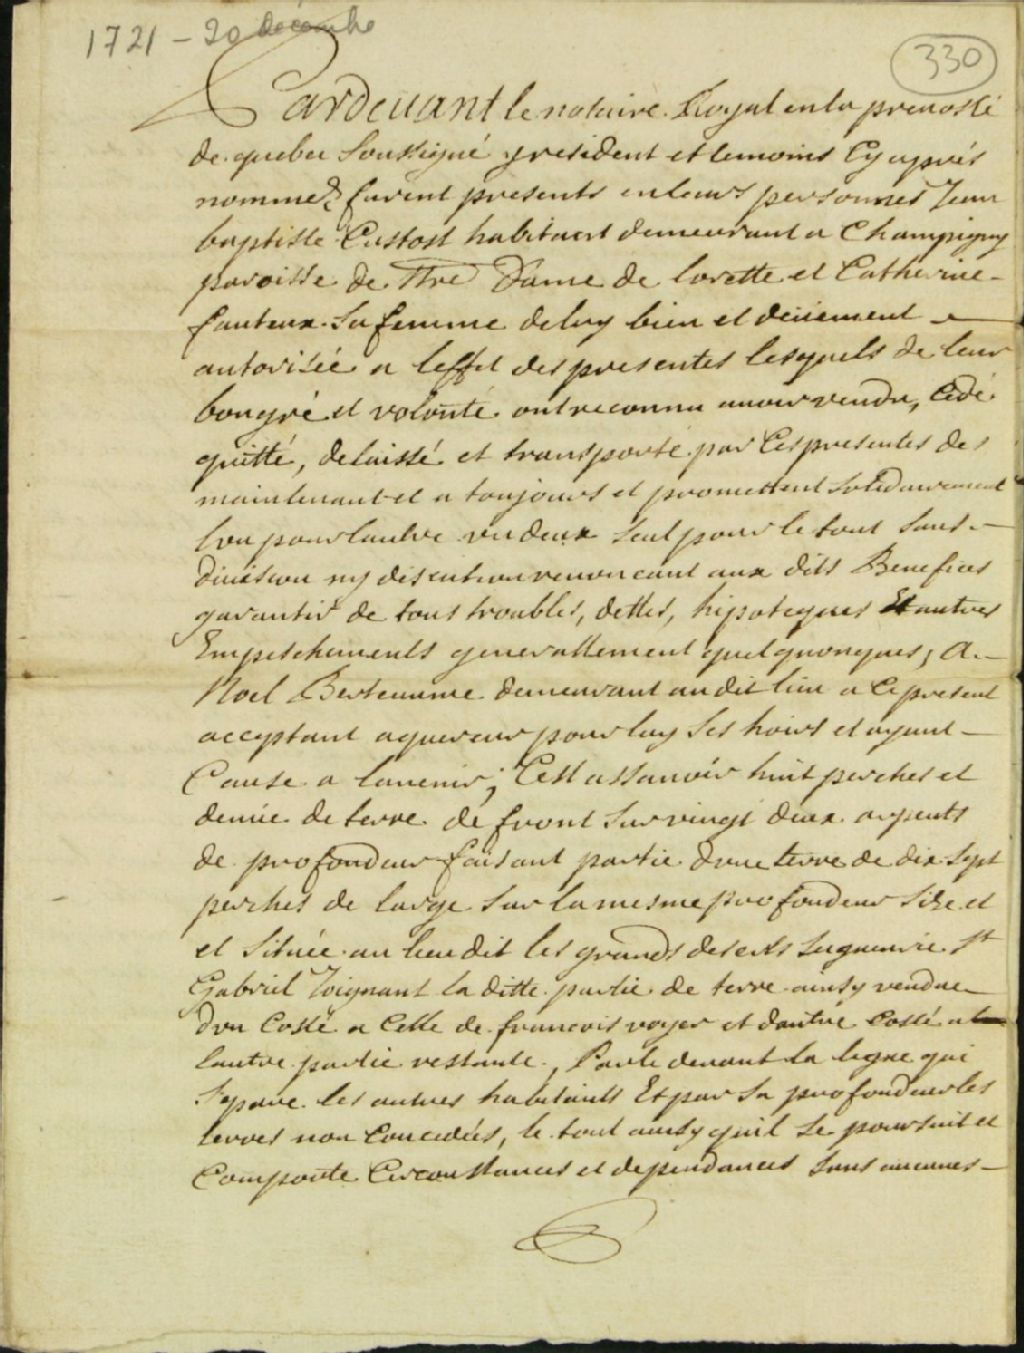 1721 - 20 décembre
330
Pardevant le notaire Royal en la prevosté
de quebec soussigné y resident et temoins Cy aprés
nommez furent presents en leurs personnes Jean
baptiste Custost habitant demeurant a Champigny
paroisse de Ntre Dame de lorette et Catherine
fauteux sa femme de luy bien et deüement
autorisée a leffet des presentes lesquels de leur
bon gré et volonté ont reconnu avoir vendu, Cedé
quitté, delaissé et transporté par Ces presentes des
maintenant et a toujours et promettent solidairement
lvn pour lautre vn deux seul pour le tout sans
division ny discution renoncant aux dits Benefices
garantir de tous troubles, dettes, hipoteques Et autres
Empeschements generallement quelquonques, A
Noel Berteaume demeurant au dit lieu a Ce present
acceptant aquereur pour luy ses hoirs et ayant
Cause a lavenir; Cest assavoir huit perches et
demie de terre de front sur vingt deux arpents
de profondeur faisant partie dvne terre de dix sept
perches de large sur la mesme profondeur size et
et située au lieu dit les grands deserts seigneurie St
Gabriel Joignant la ditte partie de terre ainsy vendue
dvn Costé a Celle de francois voyer et dautre Costé a
lautre partie restante, Par le devant la ligne qui
separe les autres habitants Et par la profondeur les
terres non Concedées, le tout ainsy quil se poursuit et
Comporte Circonstances et dependances sans aucunes